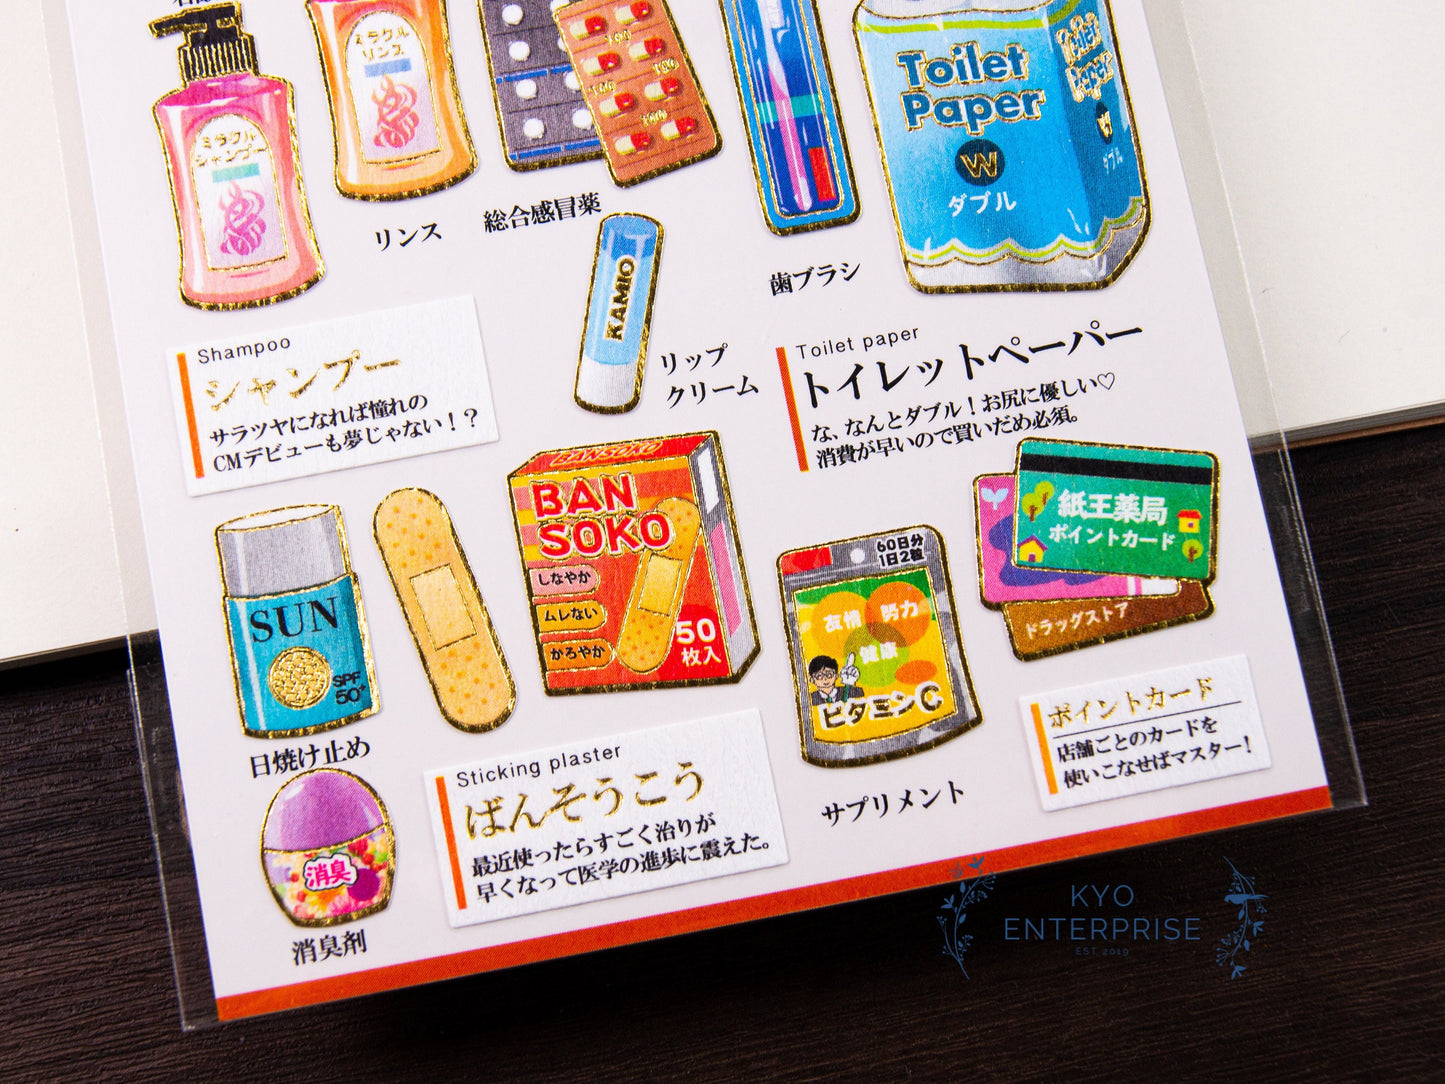 ミラクル
シャンプー
ミラクル
リンス
リンス
総合感冒薬
歯ブラシ
Toilet
Paper
W
ダブル
Toilet
Paper
W
ダブル
KAMIO
リップ
クリーム
Shampoo
シャンプー
サラツヤになれば憧れの
CMデビューも夢じゃない！？
Toilet paper
トイレットペーパー
な、なんとダブル！お尻に優しい♡
消費が早いので買いだめ必須。
SUN
SPF
50+
日焼け止め
BANSOKO
BAN
SOKO
しなやか
ムレない
かろやか
50
枚入
60日分
1日2粒
友情
努力
健康
ビタミンC
サプリメント
紙王薬局
ポイントカード
ドラッグストア
ポイントカード
店舗ごとのカードを
使いこなせばマスター！
Sticking plaster
ばんそうこう
最近使ったらすごく治りが
早くなって医学の進歩に震えた。
消臭
消臭剤
KYO
ENTERPRISE
EST 2019